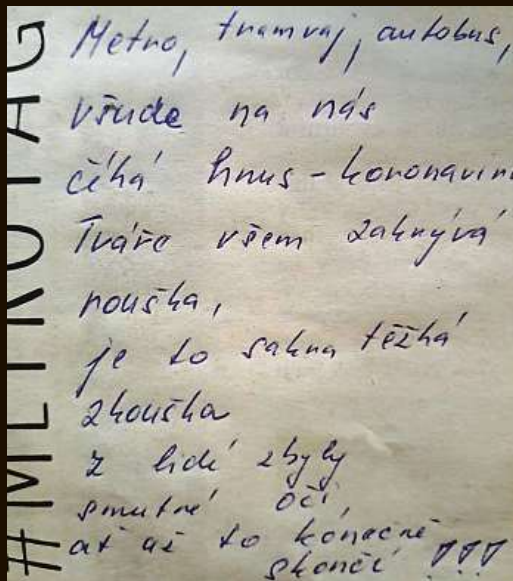 #METROTAG
Metro, tramvaj, autobus,
všude na nás
číhá hnus - koronavir
Tváře všem zakrývá
rouška,
je to sakra těžká
zkouška
z lidí zbyly
smutné oči,
ať už to konečně
skončí !!!